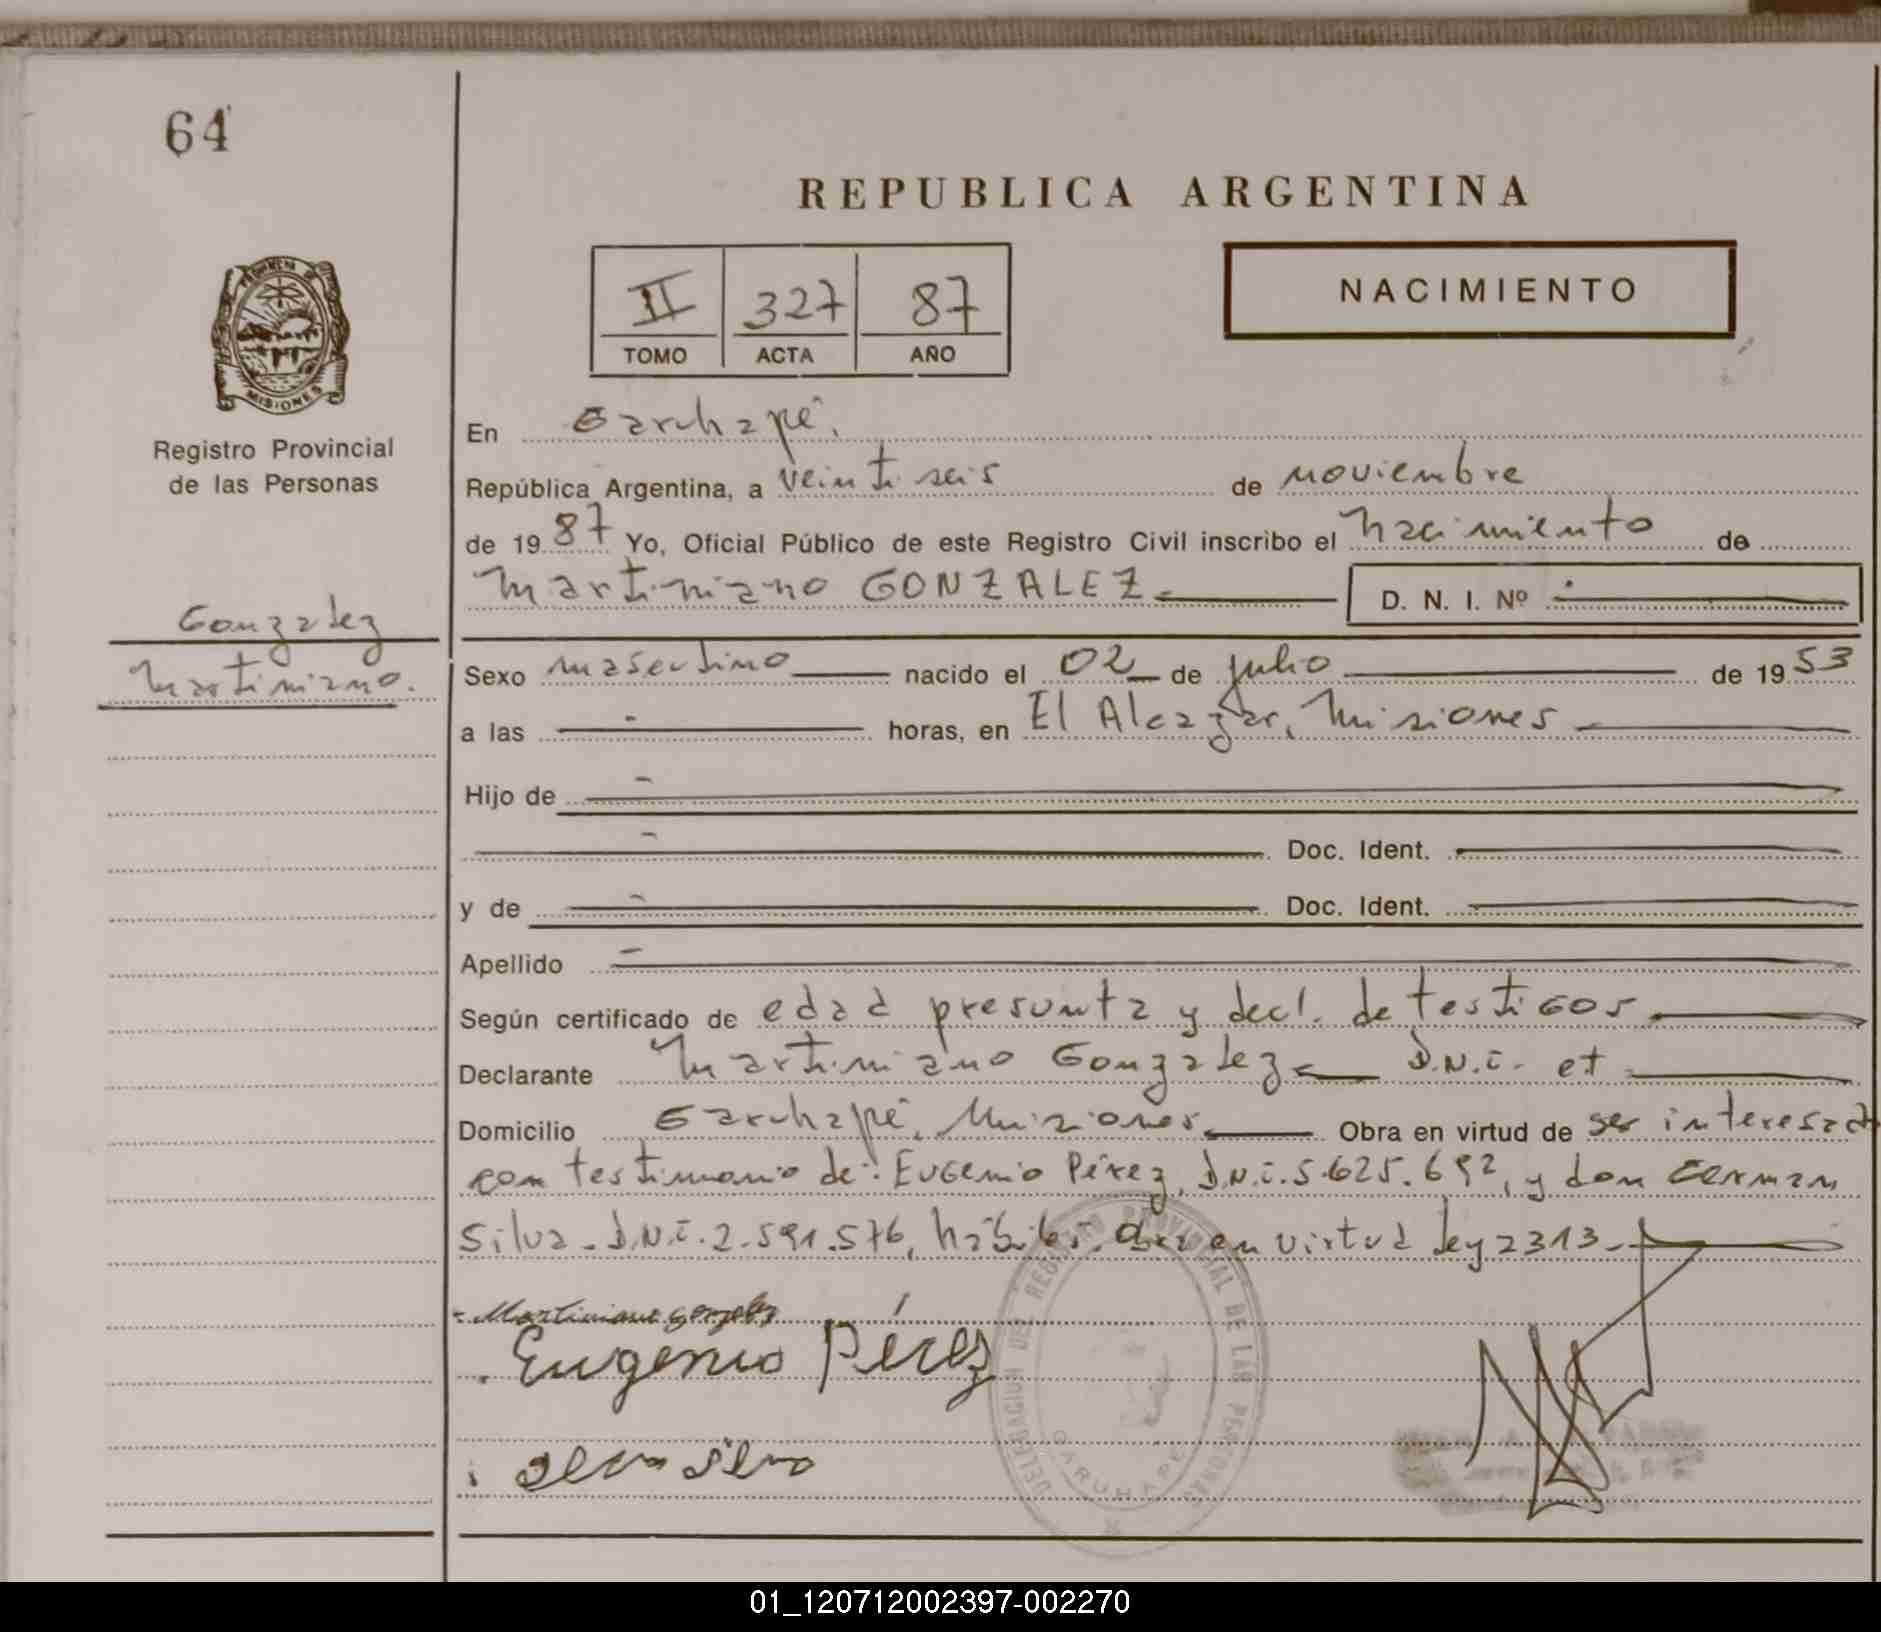 64
REPUBLICA ARGENTINA
II 327 87
TOMO ACTA AÑO
NACIMIENTO
PROVINCIA DE
MISIONES
Registro Provincial
de las Personas
Gonzalez
Martiniano.
En Garuhapé.
República Argentina, a veintiseis de noviembre
de 1987 Yo, Oficial Público de este Registro Civil inscribo el nacimiento de
Martiniano GONZALEZ
D. N. I. Nº
Sexo masculino nacido el 02 de julio de 1953
a las - horas, en El Alcazar, Misiones
Hijo de -
- Doc. Ident.
y de - Doc. Ident.
Apellido -
Según certificado de edad presunta y decl. de testigos
Declarante Martiniano Gonzalez D.N.I. et
Domicilio Garuhapé, Misiones Obra en virtud de ser interesad
con testimonio de: Eugenio Pérez, D.N.I. 5.625.692, y don German
Silva - D.N.I. 2.591.576, hábiles. Obra en virtud ley 2313-
- Martiniano gonzalez
Eugenio Pérez
silva
DELEGACION DEL REGISTRO PROVINCIAL DE LAS PERSONAS
GARUHAPE
01_120712002397-002270